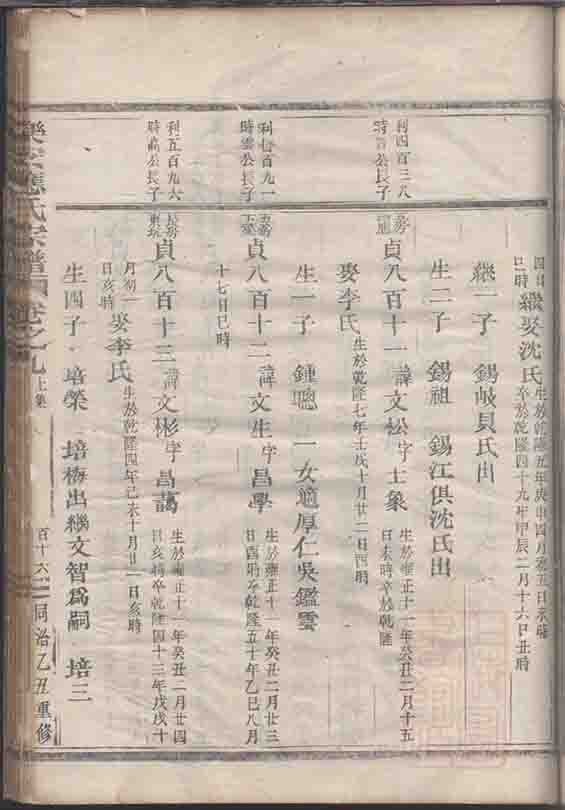 四日
巳時 繼娶沈氏 生於乾隆五年庚申四月初五日未時
卒於乾隆四十九年甲辰二月十六日丑時
繼一子 錫岐貝氏出
生二子 錫祖 錫江俱沈氏出
利四百三八
時公長子
貞八百十一 諱文松字士象 生於雍正十一年癸丑二月十五
日未時卒於乾隆
娶李氏 生於乾隆七年壬戌十月廿二日酉時
生一子 鍾聰 一女適厚仁吳鑑雲
利七百九一
時雲公長子
貞八百十二 諱文生字昌學 生於雍正十一年癸丑二月廿三
日酉時卒乾隆五十年乙巳八月
十七日巳時
利五百九六
時高公長子
長房
東坑
貞八百十三 諱文彬字昌藹 生於雍正十一年癸丑二月廿四
日亥時卒乾隆四十三年戊戌十
月初一
日亥時 娶李氏 生於乾隆四年己未十月廿一日亥時
生四子 培榮 培梅出繼文智為嗣 培三
樂安應氏宗譜 卷之九 上集 百十六 同治乙丑重修